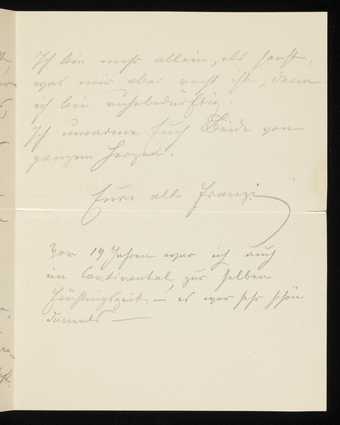 Ich bin mehr allein, als sonst,
was mir aber recht ist, denn
ich bin ruhebedürftig.
Ich umarme Euch Beide von
ganzem Herzen.
Eure alte Franzi
Vor 19 Jahren war ich auch
im Continental, zur selben
Frühlingszeit – es war sehr schön
damals —